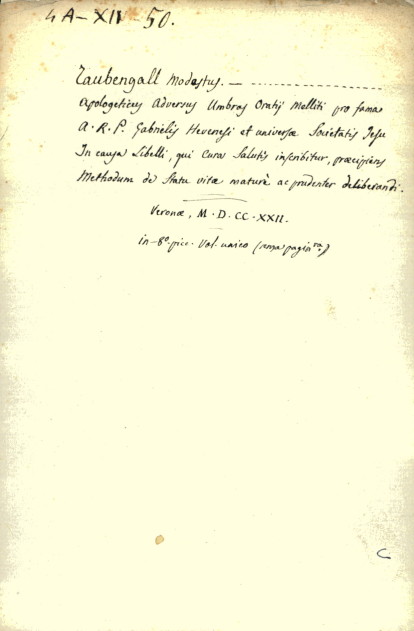 4A-XII-50.
Taubengall Modestus. —
Apologeticus Adversus Umbras Oratij Melliti pro fama
A. R. P. Gabrielis Hevenesi et universæ Societatis Jesu
In causa Libelli, qui Cura Salutis inscribitur, præcipiens
Methodum de Statu vitæ maturè ac prudenter deliberandi.
Veronæ, M. D. CC. XXII.
in-8º. picc. Vol. unico (senza paginra.)
C